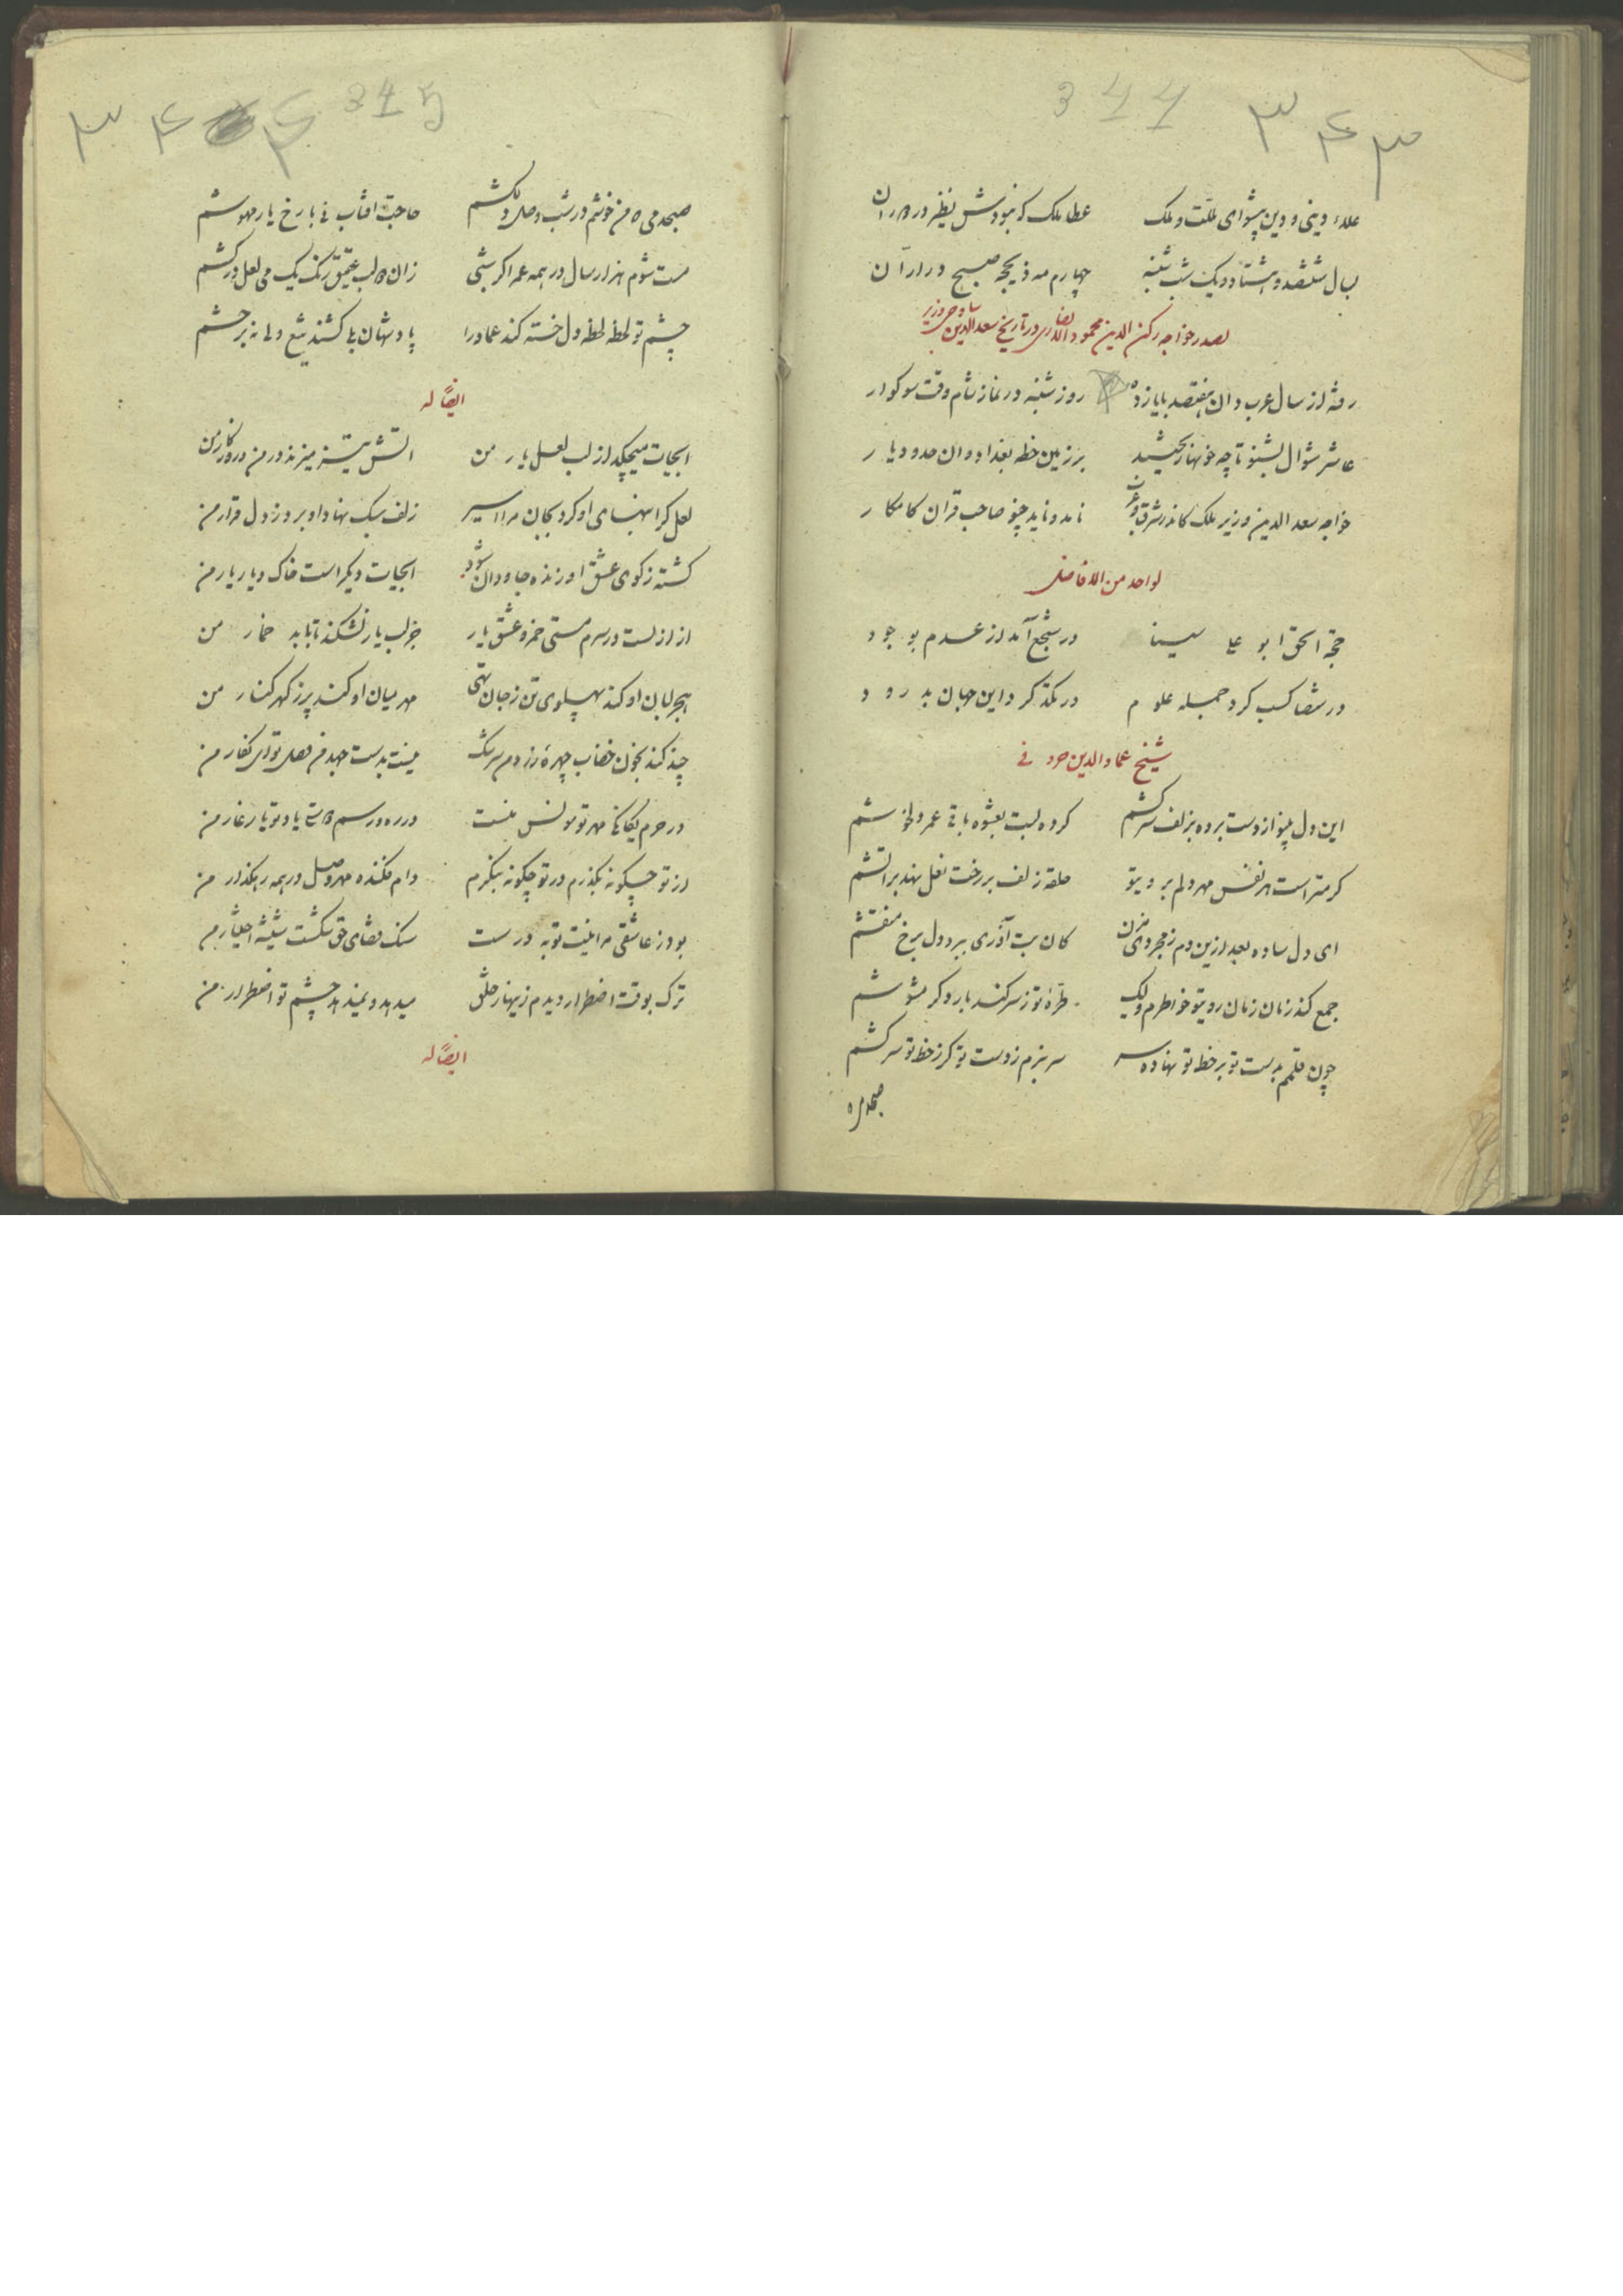 344 ۳۴۳
علاء دینی و دین پیشوای ملّت و ملک عطا ملک که نبودش نظیر در دوران
بسال ششصد و هشتاد و یک شب شنبه چهارم مه ذیحجه صبح در ارّان
لصدر خواجه رکن الدین محمود در تاریخ سعدالدین ساوجی وزیر
رفته از سال عرب دان هفتصد با یازده روز شنبه در نماز شام وقت سوکوار
عاشر شوال بشنو تا چه خونها ریختند بر زمین خطه بغداد و ان حدود دیار
خواجه سعد الدین وزیر ملک کاندر شرق و غرب نامد و ناید چنو صاحب قران کامکار
لواحد من الافاضل
حجة الحق ابو علی سینا در شجع آمد از عدم بوجود
در شصا کسب کرد جمله علوم در تکذ کرد این جهان بدرود
شیخ عماد الدین
این دل من از دست برده بزلف سرکشم کرده لبت بعشوه باقی عمر دلخوشم
کرمتر است هر نفس مهر دلم بروی تو حلقه زلف بر رخت نعل نهد بر اتشم
ای دل ساده بعد ازین دم ز مجردی مزن کان بت آذری ببرد دل برخ منقشم
جمع کند زمان زمان روی تو خواطرم ولیک طرّهٔ تو ز سر کند بار دکر مشوشم
چون قلمم بدست تو بر خط تو نهاده سر سر بنهم ز دست تو کر ز خط تو سر کشم
صبحدمی ه
۳۴۴ 345
صبحدمی ه من خوشم در شب وصل دلکشم حاجت افتاب نی با رخ یار مهوشم
مست شوم هزار سال در همه عمر اکر شبی زان دو لب عقیق رنک یک می لعل در کشم
چشم تو لحظه لحظه دل خسته کند عماد را پادشهان بلی کشند تیغ ولی نه بر حشم
ایضًا له
ابحیات میچکد از لب لعل یار من اتش تیز میزند در من و روزکار من
لعل کرانبهای او کرد بجان مرا اسیر زلف سبک نهاد او برد ز دل قرار من
کشته ز کوی عشق او زنده جاودان شود ابحیات دیکر است خاک دیار یار من
از ازلست در سرم مستی خمر و عشق یار جز لب یار نشکند تا بابد خمار من
هجر لبان او کند پهلوی تن ز جان تهی مهر میان او کند پر ز کهر کنار من
چند کند بخون خضاب چهرهٔ زردم سرشک نیست بدست جهد من وصل تو ای نکار من
در حرم یکانکی مهر تو مونس منست در ره و رسم دوستی یاد تو یار غار من
از تو چکونه بکذرم در تو چکونه بنکرم دام فکنده مهر وصل در همه رهکذار من
بود ز عاشقی مرا نیت توبه درست سنک قضای حق شکست شیشه اختیار من
ترک بوقت اضطرار دیدم زینهار خلق میدهد و نمیدهد چشم تو اضطرار من
ایضًا له